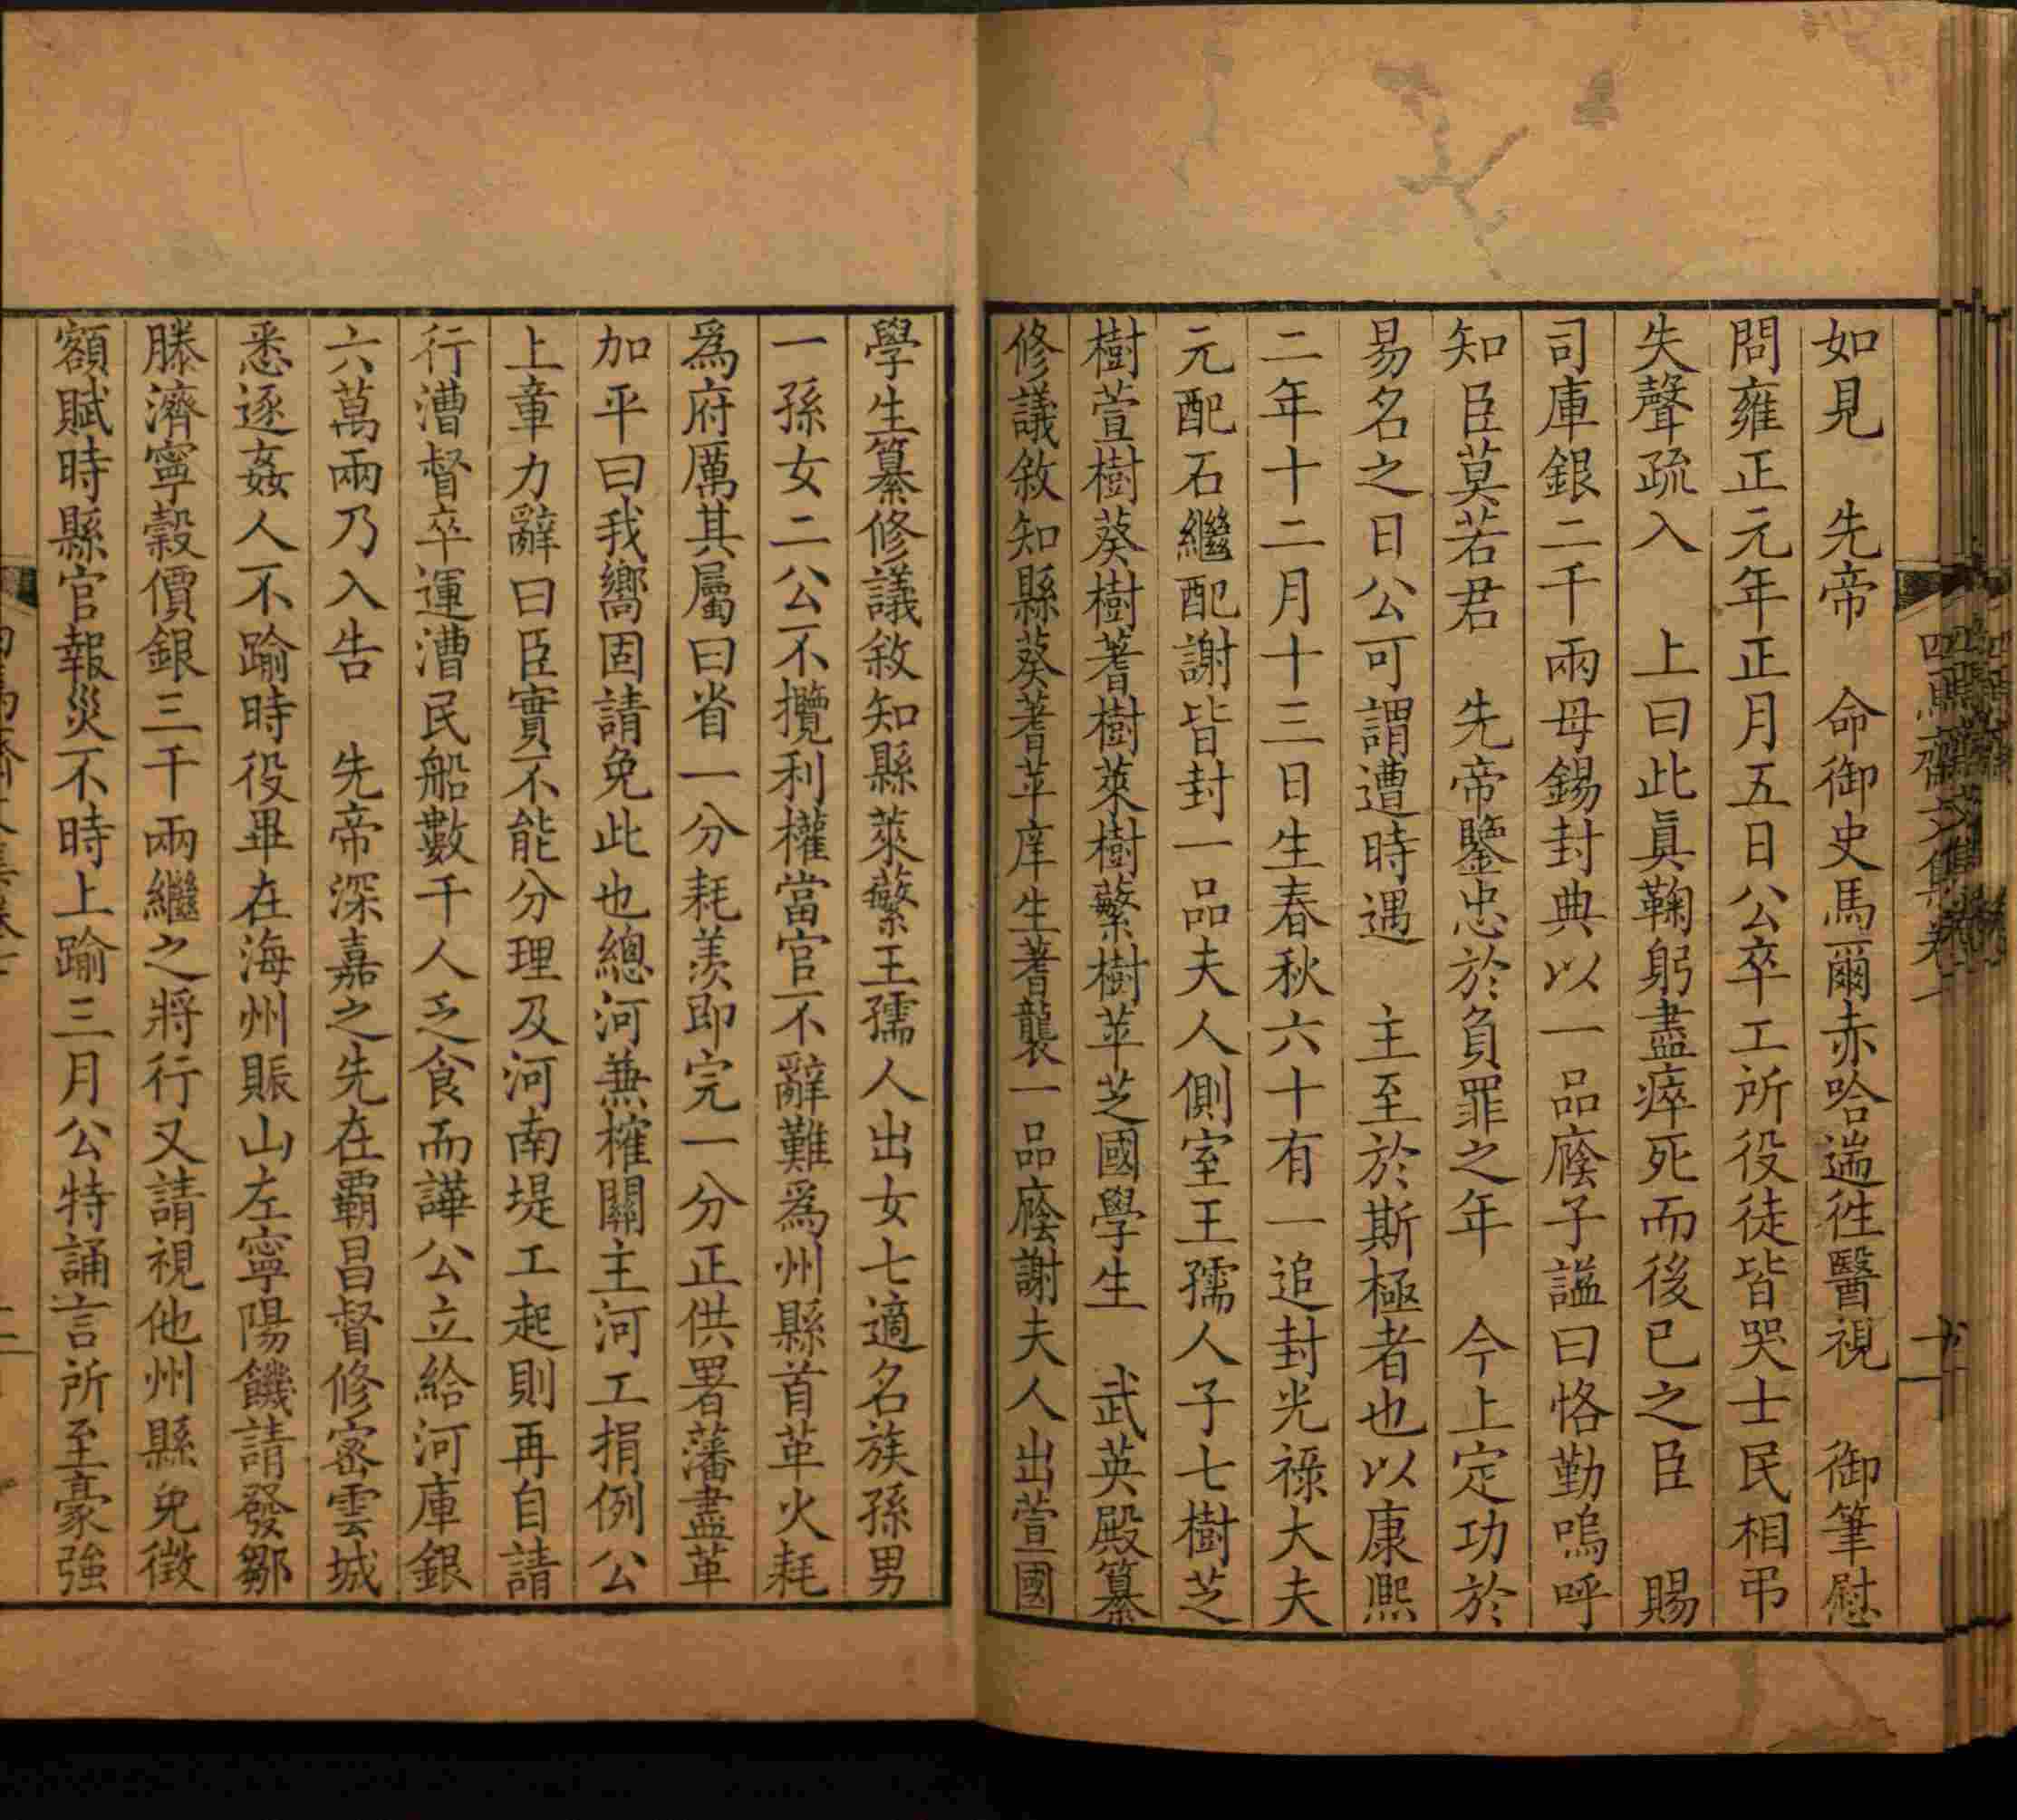 如見　先帝　命御史馬爾赤哈遄徃醫視　御筆慰
問雍正元年正月五日公卒工所役徒皆哭士民相弔
失聲疏入　上曰此眞鞠躬盡瘁死而後已之臣　賜
司庫銀二千兩母錫封典以一品廕子諡曰恪勤嗚呼
知臣莫若君　先帝鑒忠於負罪之年　今上定功於
易名之日公可謂遭時遇　主至於斯極者也以康熙
二年十二月十三日生春秋六十有一追封光祿大夫
元配石繼配謝皆封一品夫人側室王孺人子七樹芝
樹萱樹葵樹蓍樹萊樹蘩樹苹芝國學生　武英殿纂
修議敘知縣葵蓍苹庠生蓍襲一品廕謝夫人出萱國
學生纂修議敘知縣萊蘩王孺人出女七適名族孫男
一孫女二公不攬利權當官不辭難爲州縣首革火耗
爲府厲其屬曰省一分耗羨即完一分正供署藩盡革
加平曰我嚮固請免此也總河兼榷關主河工捐例公
上章力辭曰臣實不能分理及河南堤工起則再自請
行漕督卒運漕民船數千人乏食而譁公立給河庫銀
六萬兩乃入告　先帝深嘉之先在霸昌督修宻雲城
悉逐姦人不踰時役畢在海州賑山左寧陽饑請發鄒
滕濟寧穀價銀三千兩繼之將行又請視他州縣免徴
額賦時縣官報災不時上踰三月公特誦言所至豪強
四焉齋文集卷一
十一